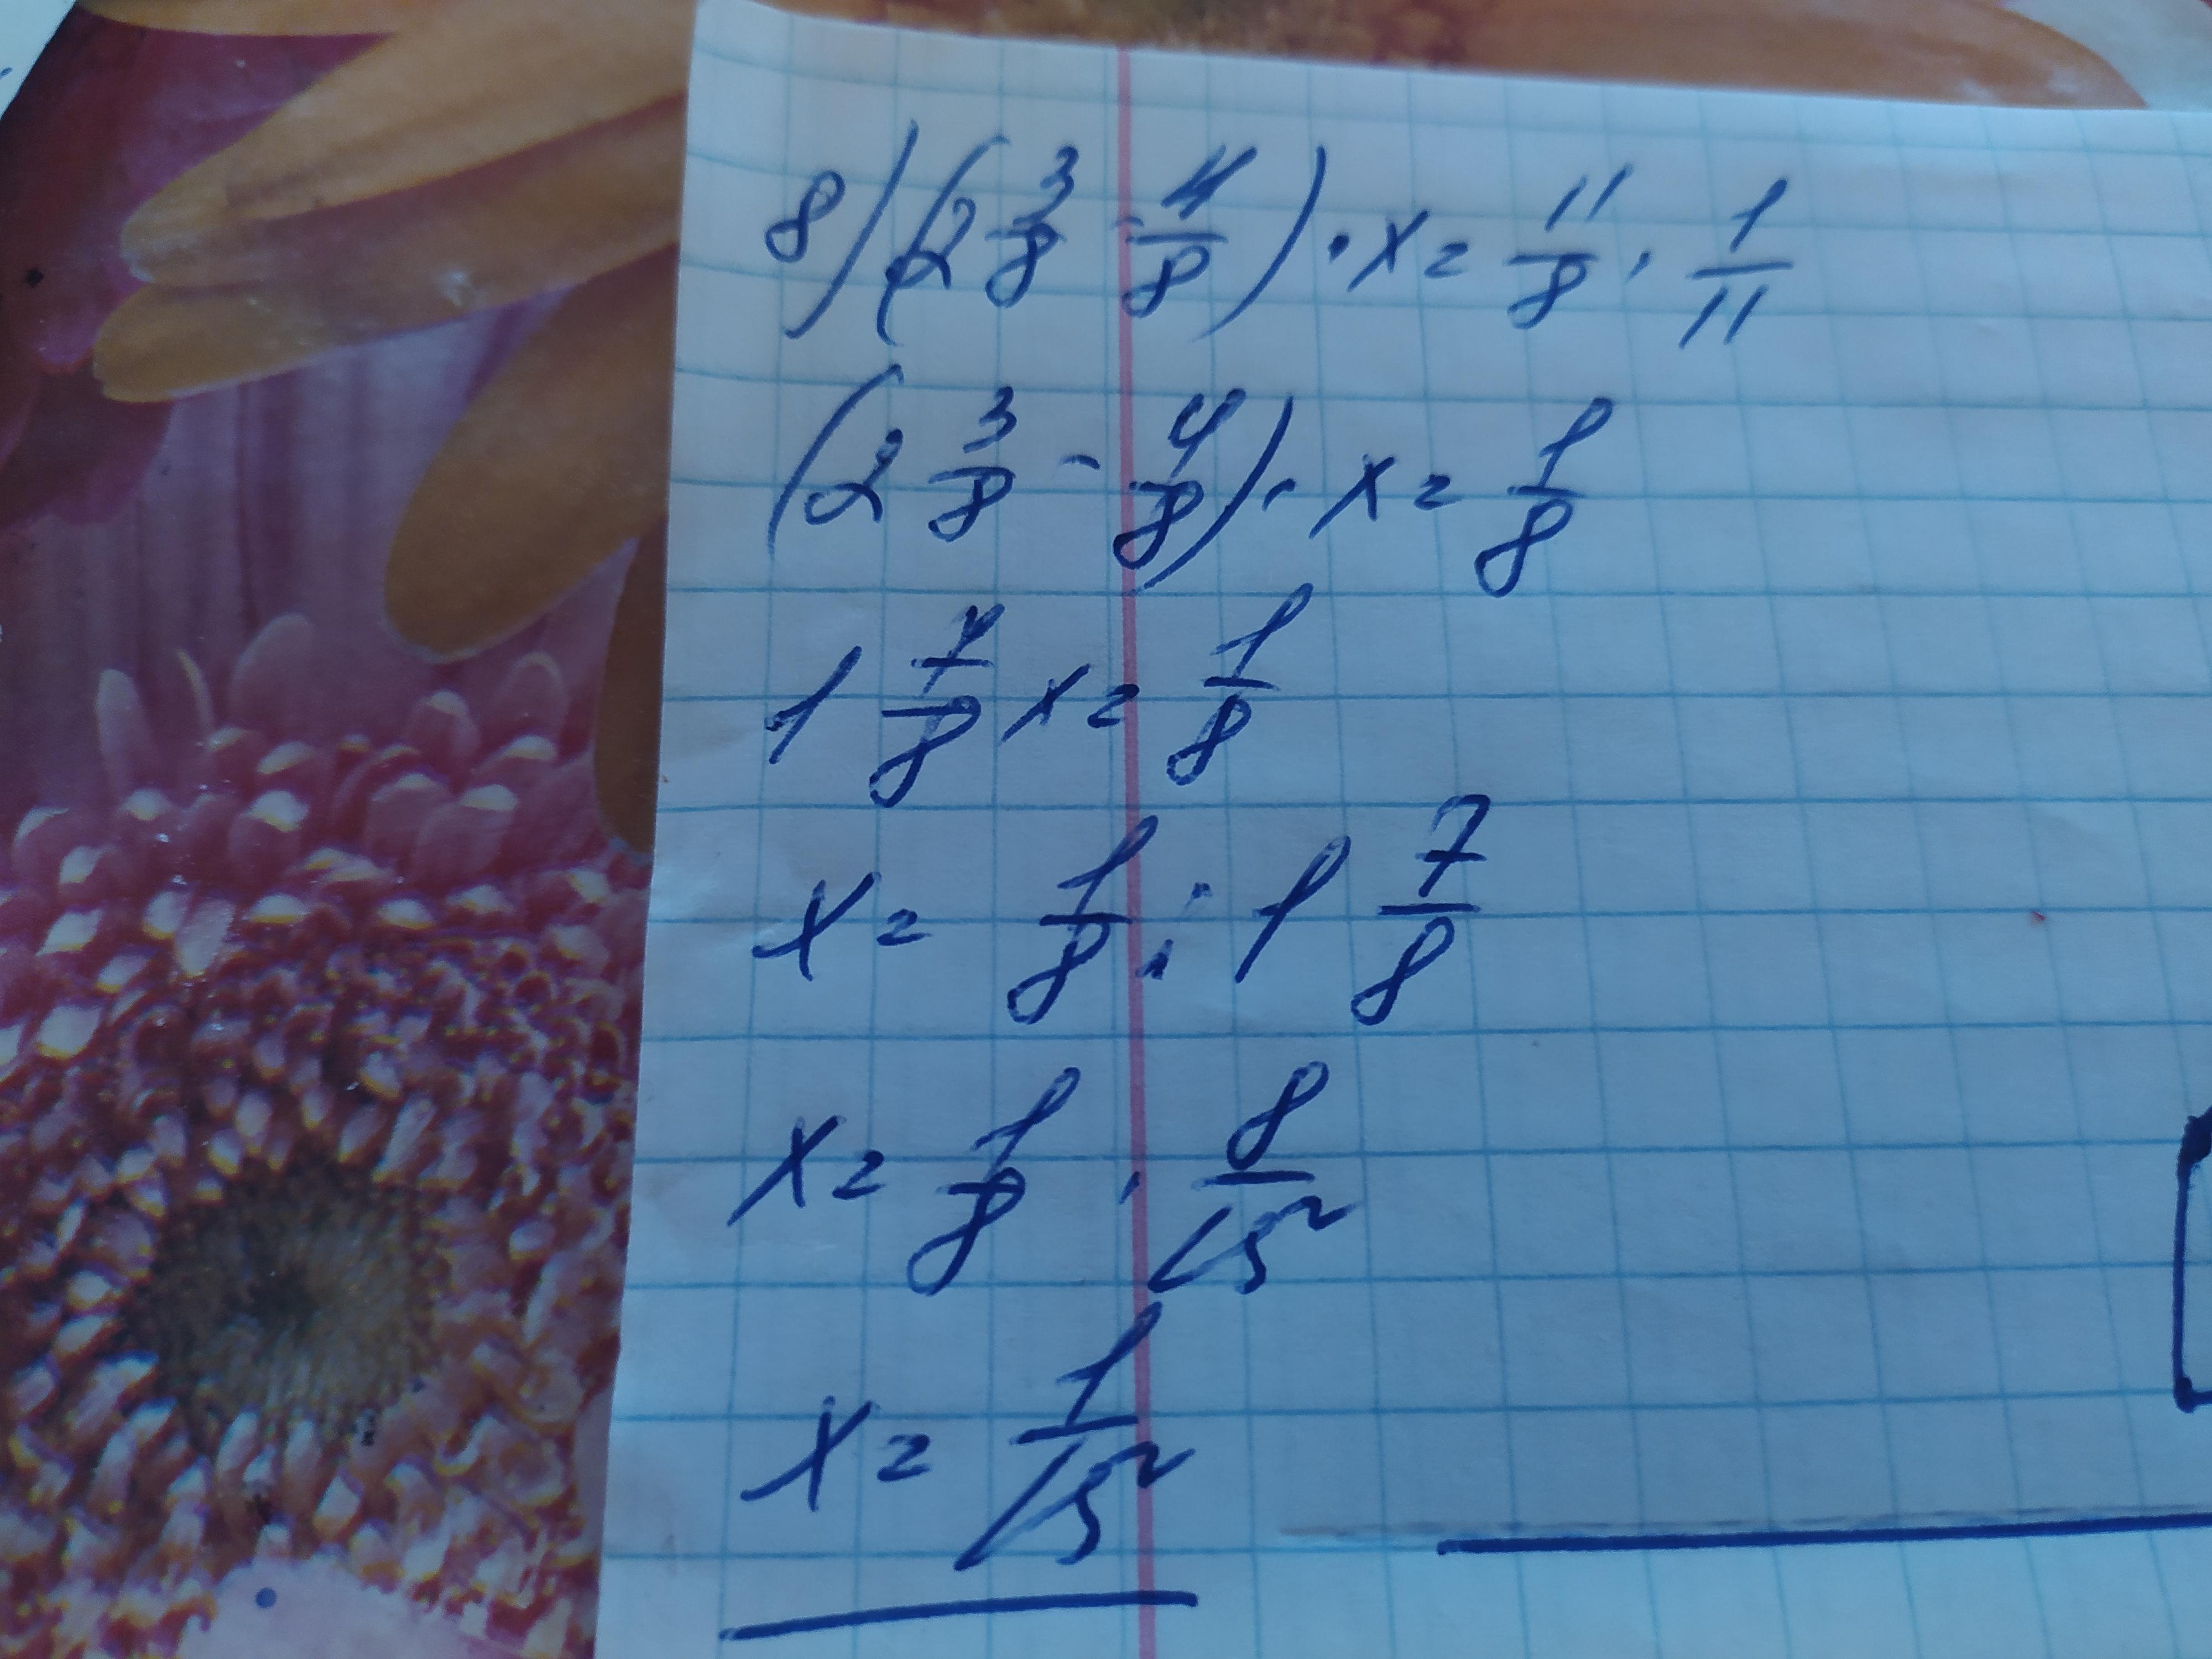 8) (2 3/8 - 4/8) · x = 11/8 · 1/11
(2 3/8 - 4/8) · x = 1/8
1 7/8 x = 1/8
x = 1/8 : 1 7/8
x = 1/8 · 8/15
x = 1/15